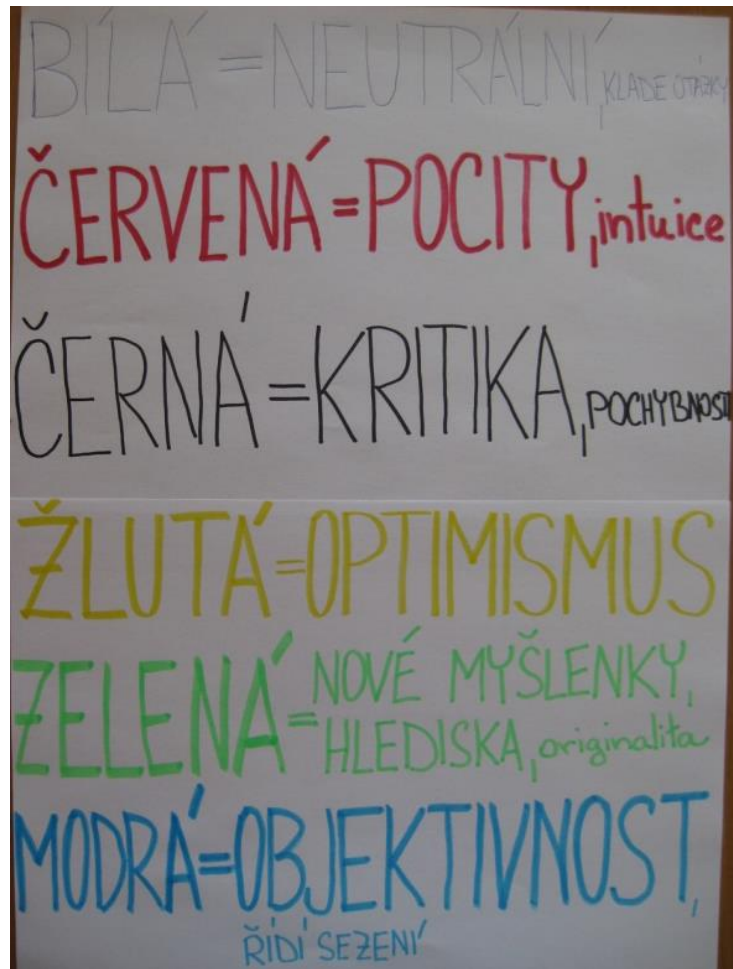 BÍLÁ = NEUTRÁLNÍ, KLADE OTÁZKY
ČERVENÁ = POCITY, intuice
ČERNÁ = KRITIKA, POCHYBNOST
ŽLUTÁ = OPTIMISMUS
ZELENÁ = NOVÉ MYŠLENKY,
HLEDISKA, originalita
MODRÁ = OBJEKTIVNOST,
ŘÍDÍ SEZENÍ